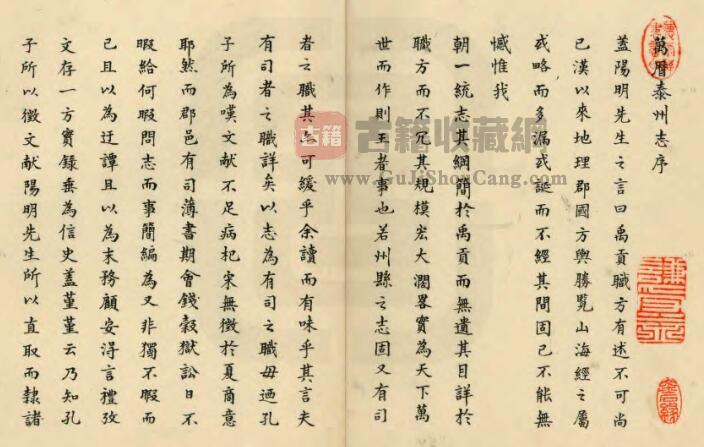 萬曆泰州志序
蓋陽明先生之言曰禹貢職方有述不可尚
已漢以來地理郡國方輿勝覽山海經之屬
或略而多漏或誕而不經其間固已不能無
憾惟我
朝一統志其綱簡於禹貢而無遺其目詳於
職方而不冗其規模宏大濶畧實為天下萬
世而作則王者事也若州縣之志固又有司
者之職其可緩乎余讀而有味乎其言夫
有司者之職詳矣以志為有司之職毋迺孔
子所為嘆文献不足病杞宋無徵於夏商意
耶然而郡邑有司薄書期會錢穀獄訟日不
暇給何暇問志而事簡編為又非獨不暇而
已且以為迂譚且以為末務顧安淂言禮攷
文存一方實錄垂為信史蓋堇堇云乃知孔
子所以徵文献陽明先生所以直取而隸諸
古籍
古籍收藏網
www.GuJiShouCang.com